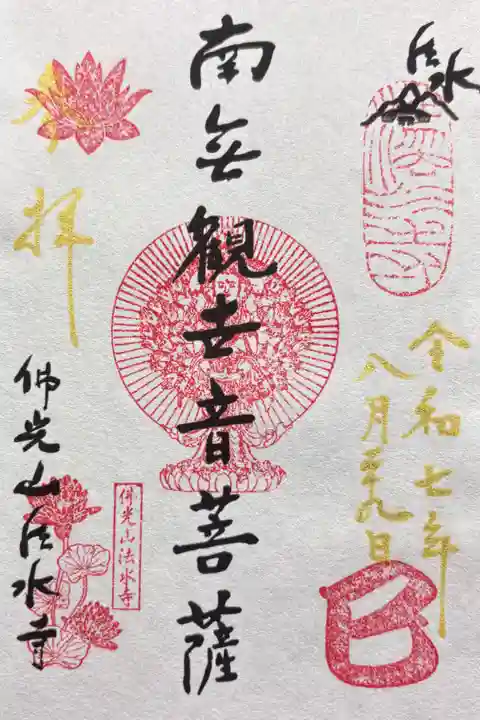 法水
令和七年
八月二十九日
巳
南無観世音菩薩
奉拝
佛光山法水寺
佛光山法水寺